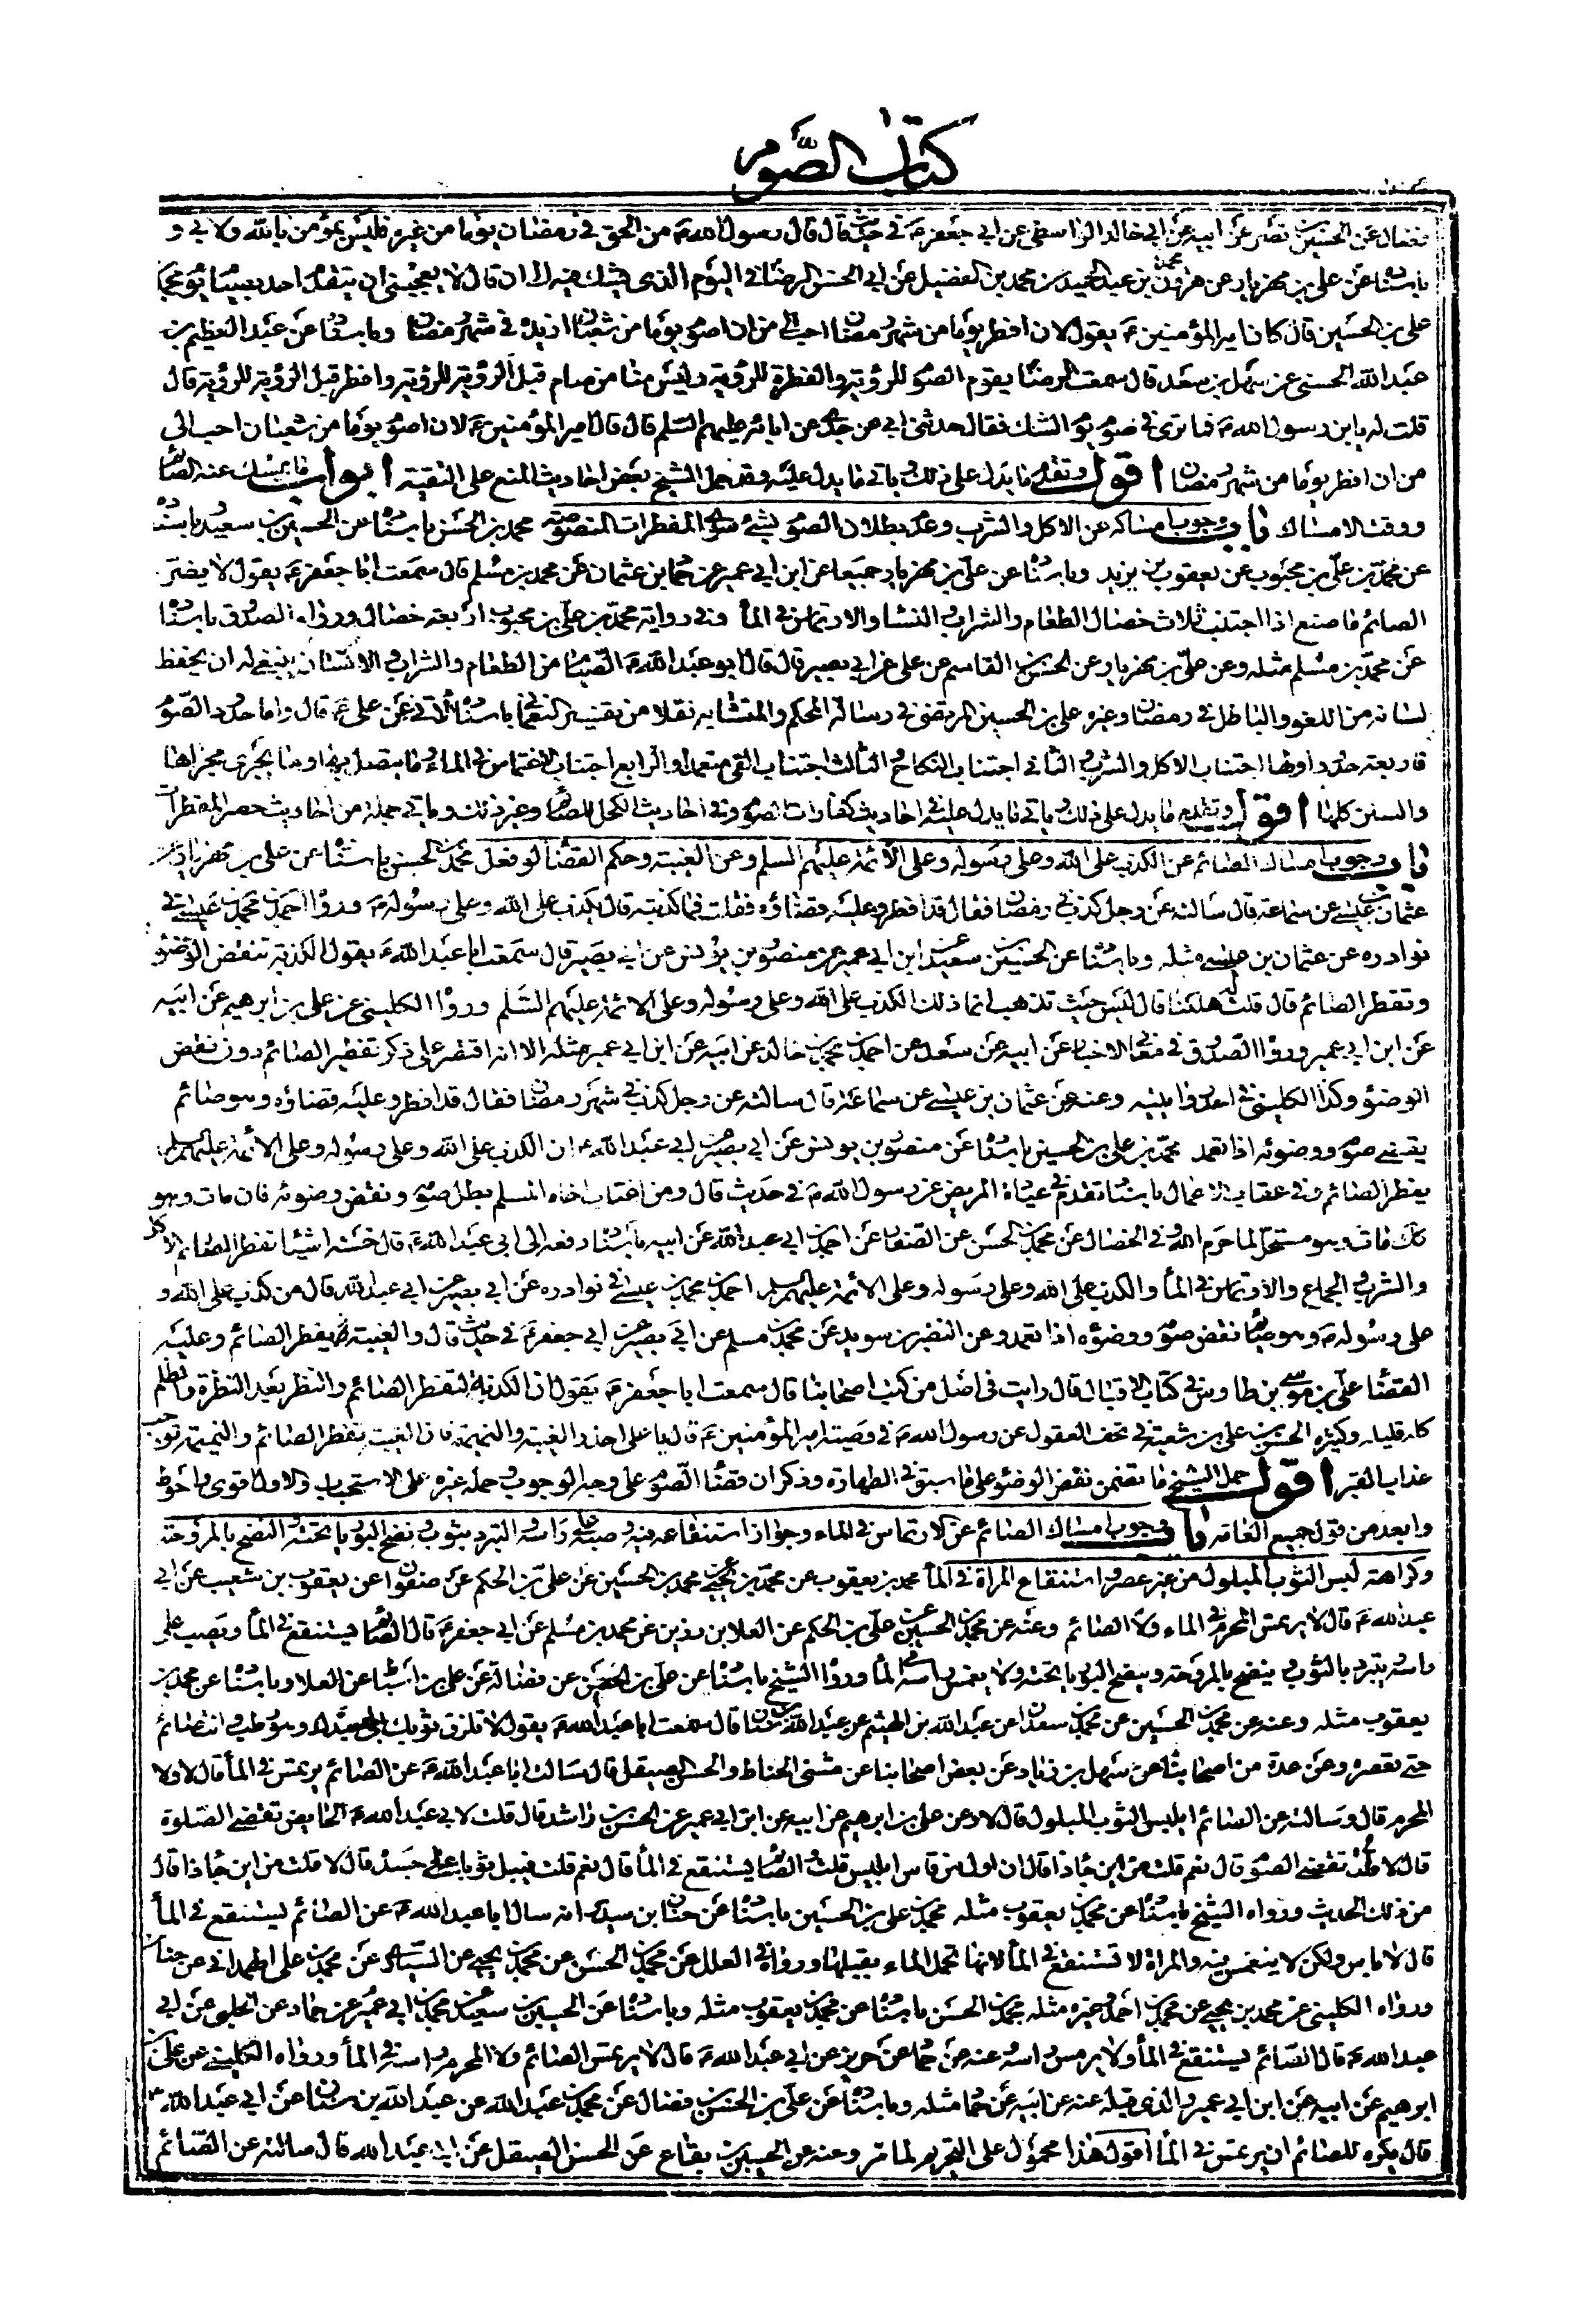 كتاب الصوم
عن الحسين بن نصر عن ابيه عن ابي خالد الواسطي عن ابي جعفر ع في حديث قال قال رسول الله ص من الحق في رمضان يوما من غيره فليس بمؤمن بالله ولا بي و
باسناده عن علي بن مهزيار عن محمد بن عبد الحميد عن محمد بن الفضيل عن ابي الحسن الرضا في اليوم الذي يشك فيه قال لا يعجبني ان يتقدم احد بصيام يوم محمد بن
علي بن الحسين قال كان امير المؤمنين ع يقول لان افطر يوما من شهر رمضان احب الي من ان اصوم يوما من شعبان ازيده في شهر رمضان وباسناده عن عبد العظيم بن
عبد الله الحسني عن سهل بن سعد قال سمعت الرضا يقول الصوم للرؤية والفطر للرؤية وليس منا من صام قبل الرؤية للرؤية وافطر قبل الرؤية للرؤية قال
قلت له يا ابن رسول الله ص فما ترى في صوم يوم الشك فقال حدثني ابي عن جدي عن ابائه عليهم السلم قال قال امير المؤمنين ع لان اصوم يوما من شعبان احب الي
من ان افطر يوما من شهر رمضان اقول وتقدم ما يدل على ذلك وياتي ما يدل عليه وقد حمل الشيخ بعض احاديث المنع على التقية ابواب ما يمسك عنه الصائم
ووقت الامساك باب وجوب امساكه عن الاكل والشرب وعدم بطلان الصوم بشئ سوى المفطرات المنصوصة محمد بن الحسن باسناده عن الحسين بن سعيد وباسناده
عن محمد بن علي بن محبوب عن يعقوب بن يزيد وباسناده عن علي بن مهزيار جميعا عن ابن ابي عمير عن حماد بن عثمان عن محمد بن مسلم قال سمعت ابا جعفر ع يقول لا يضر
الصائم ما صنع اذا اجتنب ثلاث خصال الطعام والشراب والنساء والارتماس في الماء وفي رواية محمد بن علي بن محبوب اربعة خصال ورواه الصدوق باسناده
عن محمد بن مسلم مثله وعن علي بن مهزيار عن الحسن بن القاسم عن علي عن ابي بصير قال قال ابو عبد الله ع الصيام من الطعام والشراب والانسان ينبغي له ان يحفظ
لسانه من اللغو والباطل في رمضان وغيره علي بن الحسين المرتضى في رسالة المحكم والمتشابه نقلا من تفسير النعماني باسناده الاتي عن علي ع قال واما حدود الصوم
فاربعة حدود اولها اجتناب الاكل والشرب والثاني اجتناب النكاح والثالث اجتناب القئ متعمدا والرابع اجتناب الاغتماس في الماء وما يتصل بها وما يجري مجراها
والسنن كلها اقول وتقدم ما يدل على ذلك وياتي ما يدل عليه في احاديث كفارات الصوم وفي احاديث الكحل للصائم وغير ذلك وياتي جملة من احاديث حصر المفطرات
باب وجوب امساك الصائم عن الكذب على الله وعلى رسوله وعلى الائمة عليهم السلم وعن الغيبة وحكم القضاء لو فعل محمد بن الحسن باسناده عن علي بن مهزيار عن
عثمان بن عيسى عن سماعة قال سالته عن رجل كذب في رمضان فقال قد افطر وعليه قضاؤه فقلت فما كذبته قال يكذب على الله وعلى رسوله ص ورواه احمد بن محمد بن عيسى في
نوادره عن عثمان بن عيسى مثله وباسناده عن الحسين بن سعيد عن ابن ابي عمير عن منصور بن يونس عن ابي بصير قال سمعت ابا عبد الله ع يقول الكذبة تنقض الوضوء
وتفطر الصائم قال قلت هلكنا قال ليس حيث تذهب انما ذلك الكذب على الله وعلى رسوله وعلى الائمة عليهم السلم ورواه الكليني عن علي بن ابرهيم عن ابيه
عن ابن ابي عمير ورواه الصدوق في معاني الاخبار عن ابيه عن سعد عن احمد بن محمد بن خالد عن ابيه عن ابن ابي عمير مثله الا انه اقتصر على ذكر تفطير الصائم دون نقض
الوضوء وكذا الكليني في احدى روايتيه وعنه عن عثمان بن عيسى عن سماعة قال سالته عن رجل كذب في شهر رمضان فقال قد افطر وعليه قضاؤه وهو صائم
يقضي صومه ووضوئه اذا تعمد محمد بن علي بن الحسين باسناده عن منصور بن يونس عن ابي بصير عن ابي عبد الله ع ان الكذب على الله وعلى رسوله وعلى الائمة عليهم السلم
يفطر الصائم وفي عقاب الاعمال باسناد تقدم في عيادة المريض عن رسول الله ص في حديث قال ومن اغتاب اخاه المسلم بطل صومه ونقض وضوئه فان مات وهو
كذلك مات وهو مستحل لما حرم الله وفي الخصال عن محمد بن الحسن عن الصفار عن احمد بن ابي عبد الله عن ابيه باسناده رفعه الى ابي عبد الله ع قال خمسة اشياء تفطر الصائم الاكل
والشرب والجماع والارتماس في الماء والكذب على الله وعلى رسوله وعلى الائمة عليهم السلم احمد بن محمد بن عيسى في نوادره عن ابي بصير عن ابي عبد الله قال من كذب على الله و
على رسوله ص وهو صائم نقض صومه ووضوءه اذا تعمد وعن النضر بن سويد عن محمد بن مسلم عن ابي بصير عن ابي جعفر ع في حديث قال والغيبة يفطر الصائم وعليه
القضاء علي بن موسى بن طاوس في كتاب الاقبال قال رايت في اصل من كتب اصحابنا قال سمعت ابا جعفر ع يقول ان الكذبة لتفطر الصائم والنظرة بعد النظرة والظلم
كله قليله وكثيره الحسن بن علي بن شعبة في تحف العقول عن رسول الله ص في وصيته لامير المؤمنين ع قال يا علي احذر الغيبة والنميمة فان الغيبة تفطر الصائم والنميمة توجب
عذاب القبر اقول حمل الشيخ ما تضمن نقض الوضوء على ما سبق في الطهارة وذكر ان قضاء الصوم على وجه الوجوب وحمله غيره على الاستحباب والاول اقوى واحوط
وابعد من قول جميع العامة باب وجوب امساك الصائم عن الارتماس في الماء وجواز استنقاعه فيه وصبه على راسه والتبرد بثوب ونضح البوريا تحته والنضح بالمروحة
وكراهة لبس الثوب المبلول من غير عصر واستنقاع المراة في الماء محمد بن يعقوب عن محمد بن يحيى عن محمد بن الحسين عن علي بن الحكم عن صفوان عن يعقوب بن شعيب عن ابي
عبد الله ع قال لا يرتمس المحرم في الماء ولا الصائم وعنه عن محمد بن الحسين عن علي بن الحكم عن العلا بن رزين عن محمد بن مسلم عن ابي جعفر ع قال الصائم يستنقع في الماء ويصب على
راسه ويتبرد بالثوب وينضح بالمروحة وينضح البوريا تحته ولا يغمس راسه في الماء ورواه الشيخ باسناده عن علي بن الحسن عن فضالة عن علي بن اسباط عن العلا وباسناده عن محمد بن
يعقوب مثله وعنه عن محمد بن الحسين عن محمد بن سعدان عن عبد الله بن الهيثم عن عبد الله بن سنان قال سمعت ابا عبد الله ع يقول لا تلزق ثوبك الى جسدك وهو رطب وانت صائم
حتى تعصره وعن عدة من اصحابنا عن سهل بن زياد عن بعض اصحابنا عن مثنى الحناط والحسن الصيقل قال سالت ابا عبد الله ع عن الصائم يرتمس في الماء قال لا ولا
المحرم قال وسالته عن الصائم ايلبس الثوب المبلول قال لا وعن علي بن ابرهيم عن ابيه عن ابن ابي عمير عن الحسن بن راشد قال قلت لابي عبد الله ع الحائض تقضي الصلوة
قال لا قلت تقضي الصوم قال نعم قلت من اين جاء ذا قال ان اول من قاس ابليس قلت والصائم يستنقع في الماء قال نعم قلت فيبل ثوبا على جسده قال لا قلت من اين جاء ذا قال
من ذلك الحديث ورواه الشيخ باسناده عن محمد بن يعقوب مثله محمد بن علي بن الحسين باسناده عن حنان بن سدير انه سال ابا عبد الله ع عن الصائم يستنقع في الماء
قال لا باس ولكن لا ينغمس فيه والمراة لا تستنقع في الماء لانها تحمل الماء بقبلها ورواه في العلل عن محمد بن الحسن عن محمد بن يحيى عن السياري عن محمد بن علي الهمداني عن حنان
ورواه الكليني عن محمد بن يحيى عن محمد بن احمد وغيره مثله محمد بن الحسن باسناده عن محمد بن يعقوب مثله وباسناده عن الحسين بن سعيد عن محمد بن ابي عمير عن حماد عن الحلبي عن ابي
عبد الله ع قال الصائم يستنقع في الماء ولا يرمس راسه وعنه عن حماد عن حريز عن ابي عبد الله ع قال لا يرتمس الصائم ولا المحرم راسه في الماء ورواه الكليني عن علي بن
ابرهيم عن ابيه عن ابن ابي عمير والذي قبله عنه عن ابيه عن حماد مثله وباسناده عن علي بن الحسن بن فضال عن محمد بن عبد الله عن عبد الله بن سنان عن ابي عبد الله ع
قال يكره للصائم ان يرتمس في الماء اقول هذا محمول على التحريم لما مر وعنه عن الحسين بن بقاح عن الحسن الصيقل عن ابي عبد الله قال سالته عن الصائم